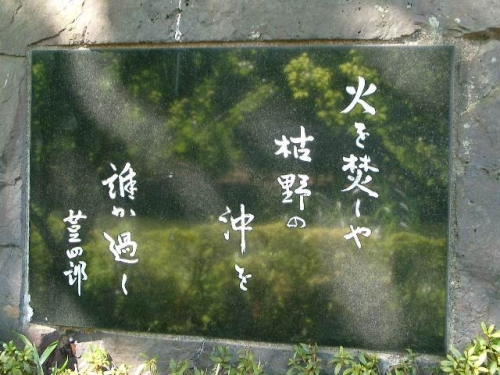 火を焚しや
枯野の
沖を
誰か過し
莖四郎